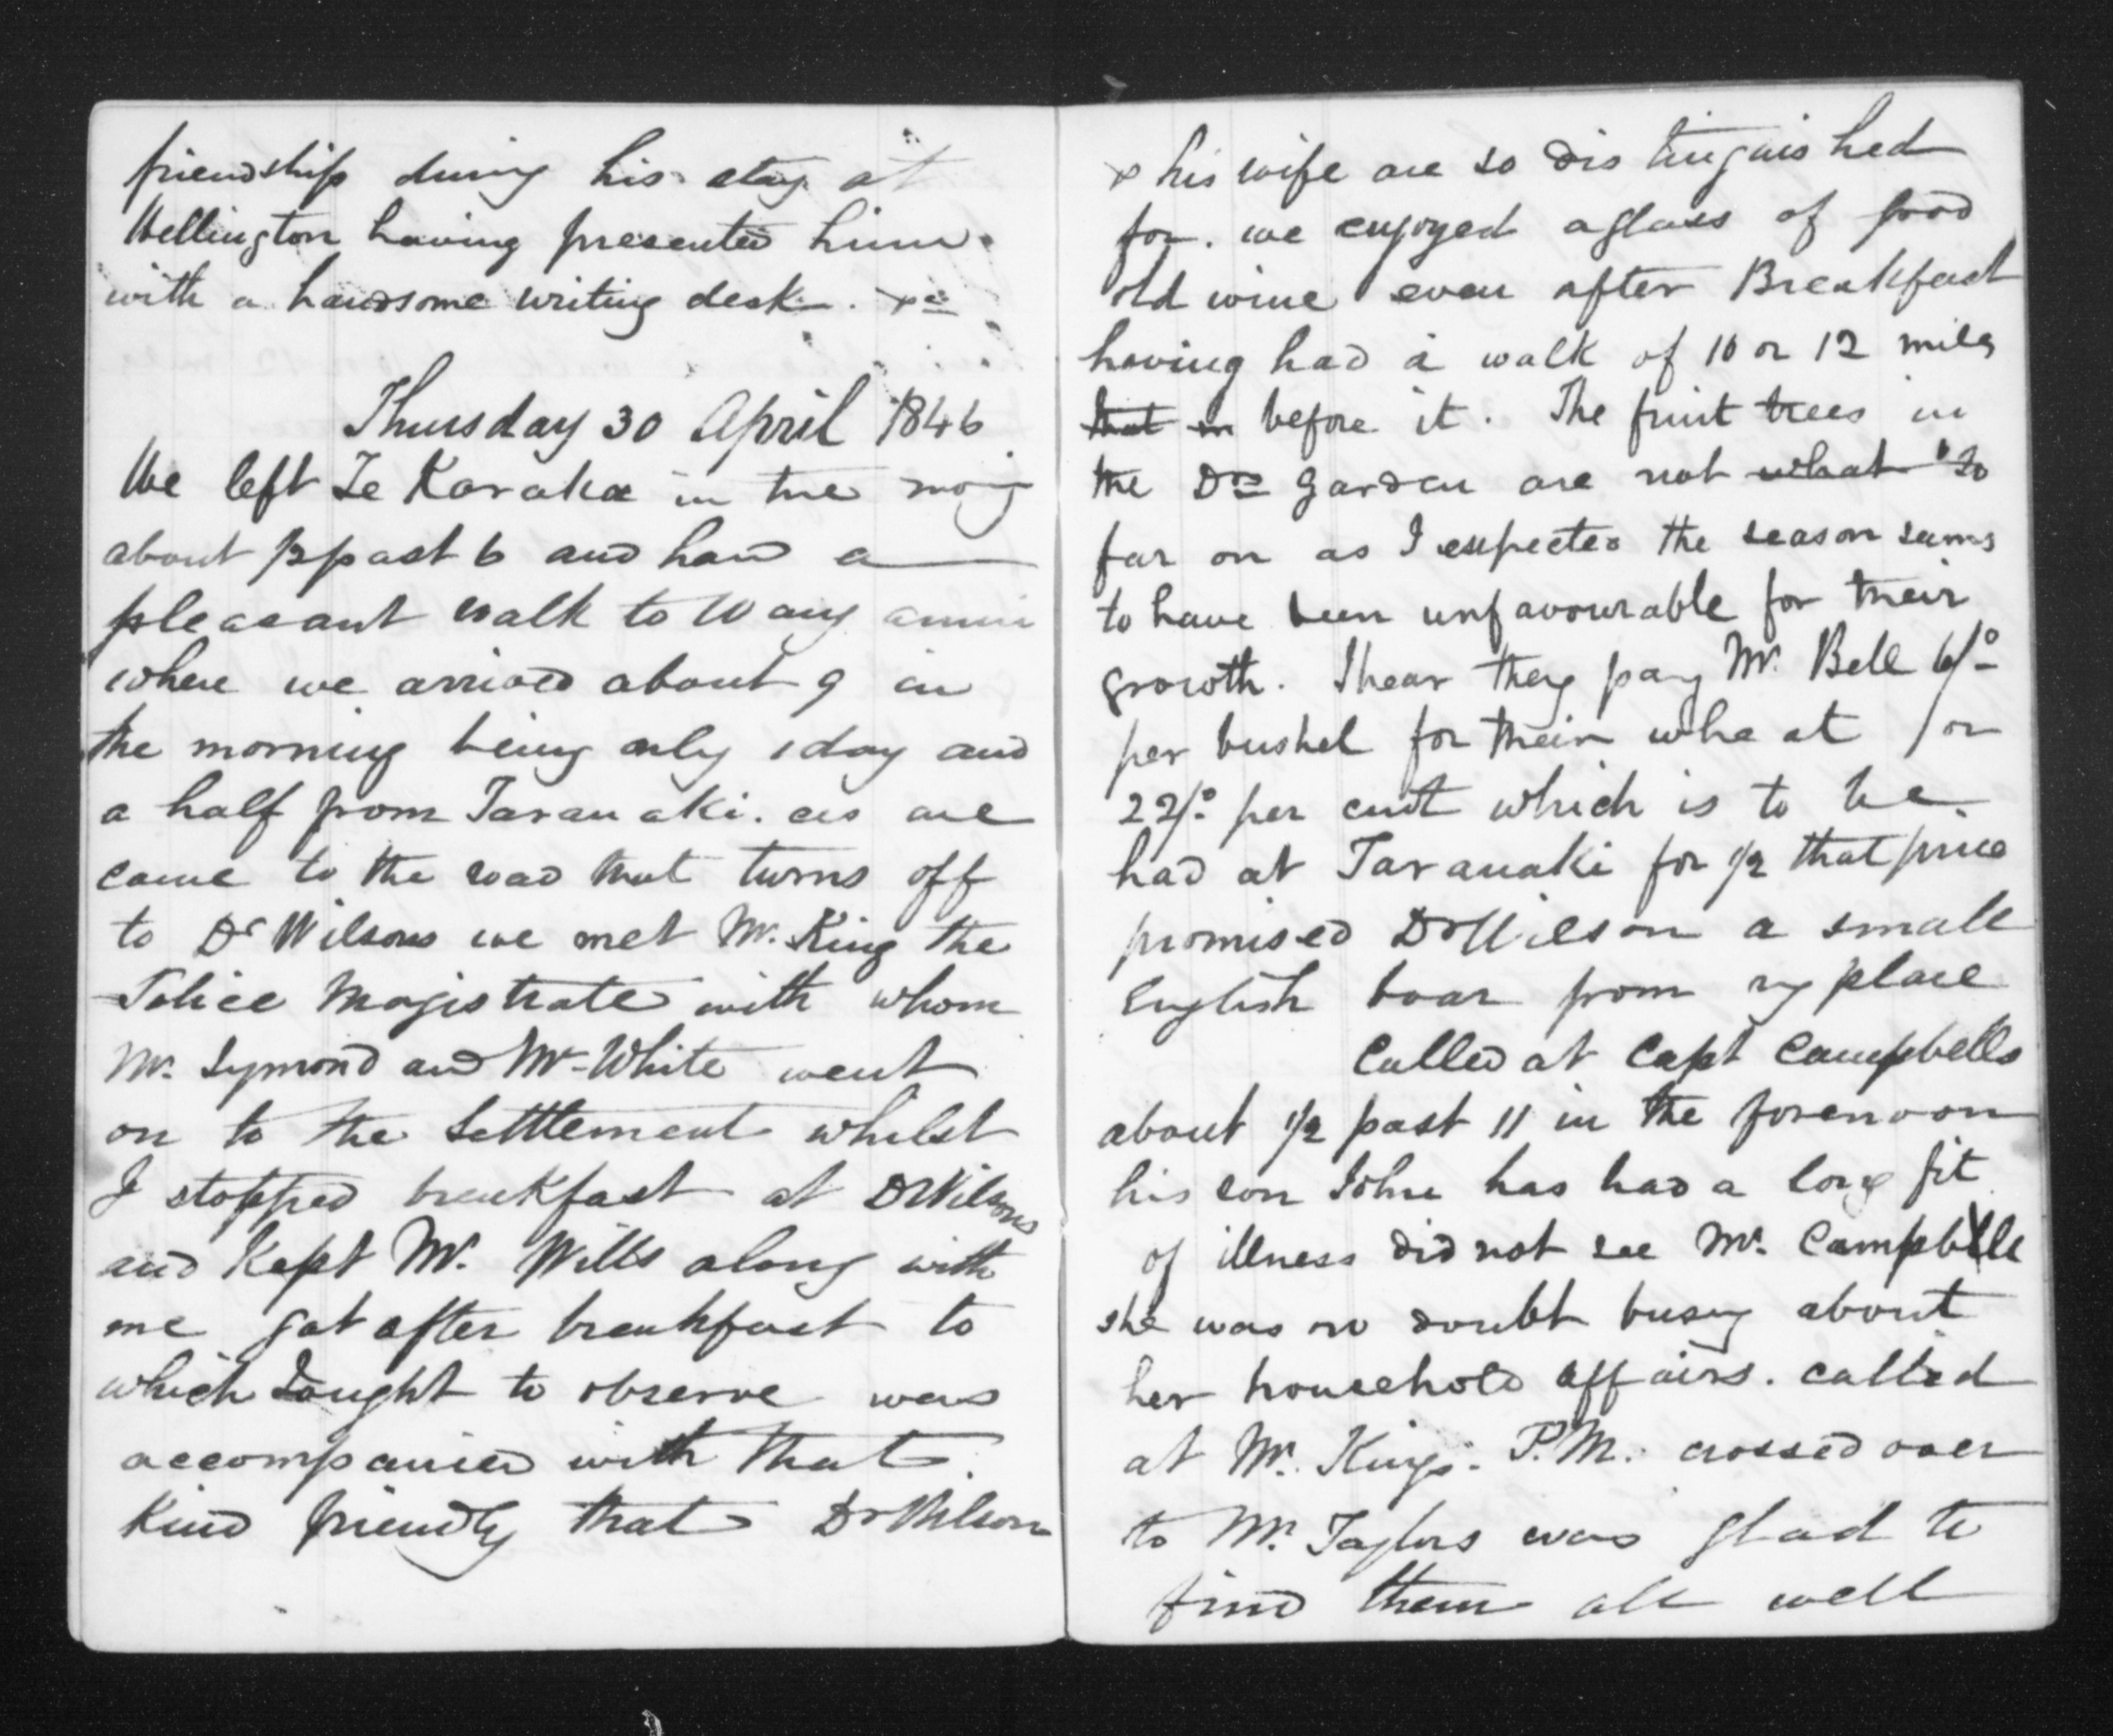 friendship during his stay at
Wellington having presented him
with a handsome writing desk. &c
Thursday 30 April 1846
We left Te Karaka in the mog
about ½ past 6 and had a
pleasant walk to Wang anui
where we arrived about 9 in
the morning being only 1 day and
a half from Taranaki. as we
came to the road that turns off
to Dr Wilsons we met Mr. King the
Police Magistrate with whom
Mr. Symond and Mr White went
on to the Settlement whilst
I stopped breakfast at Dr Wilsons
and Kept Mr. Wills along with
me got after breakfast to
which I ought to observe was
accompanied with that
Kind friendly that Dr Wilson
& his wife are so dis tinguis hed
for. we enjoyed a glass of good
old wine even after Breakfast
having had a walk of 10 or 12 miles
that in before it. The fruit trees in
the Drs Garden are not what so
far on as I expected the season seems
to have been unfavourable for their
growth. I hear they pay Mr. Bell 6/0
per bushel for their whe at / or
22/0 per cwt which is to be
had at Taranaki for ½ that price
promised Dr Wilson a small
English boar from my place
Called at Capt Campbells
about ½ past 11 in the forenoon
his son John has had a long fit
of illness did not see Mrs. Campbell
she was no doubt busy about
her household affairs. called
at Mr. Kings. P.M. crossed over
to Mr. Taylors was glad to
find them all well